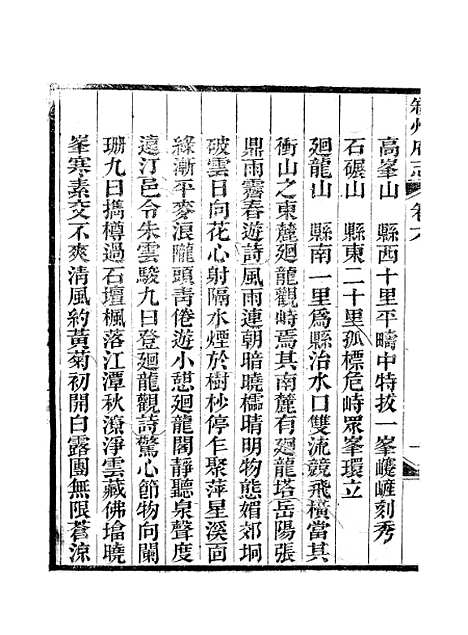 叙州府志 卷六 一
高峯山 縣西十里平疇中特拔一峯巉巉刻秀
石碾山 縣東二十里孤標危峙眾峯環立
廻龍山 縣南一里爲縣治水口雙流競飛橫當其
衝山之東麓廻龍觀峙焉其南麓有廻龍塔岳陽張
鼎雨霽春遊詩風雨連朝暗曉櫺晴明物態媚郊坰
破雲日向花心射隔水煙於樹杪停乍聚萍星溪面
綠漸平麥浪隴頭靑倦遊小憩廻龍閣靜聽泉聲度
遠汀邑令朱雲駿九日登廻龍觀詩驚心節物向闌
珊九日攜樽過石壇楓落江潭秋潦淨雲藏佛塔曉
峯寒素交不爽清風約黃菊初開白露團無限蒼涼